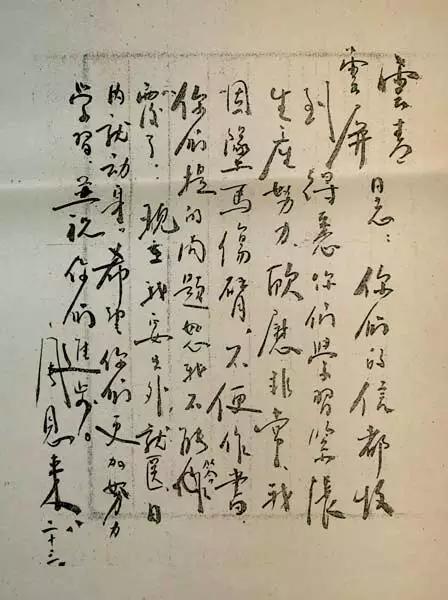 雲青
雲屏 同志：你们的信都收
到 得悉你们學習緊張
生産努力，欣慰非常，我
因墜馬傷臂，不便作書，
你们提的问題恕我不能作答
覆了：现在我要出外就医，日
内就动身。希望你们更加努力
学習，並祝你们進步。
周恩来
八 二十三。